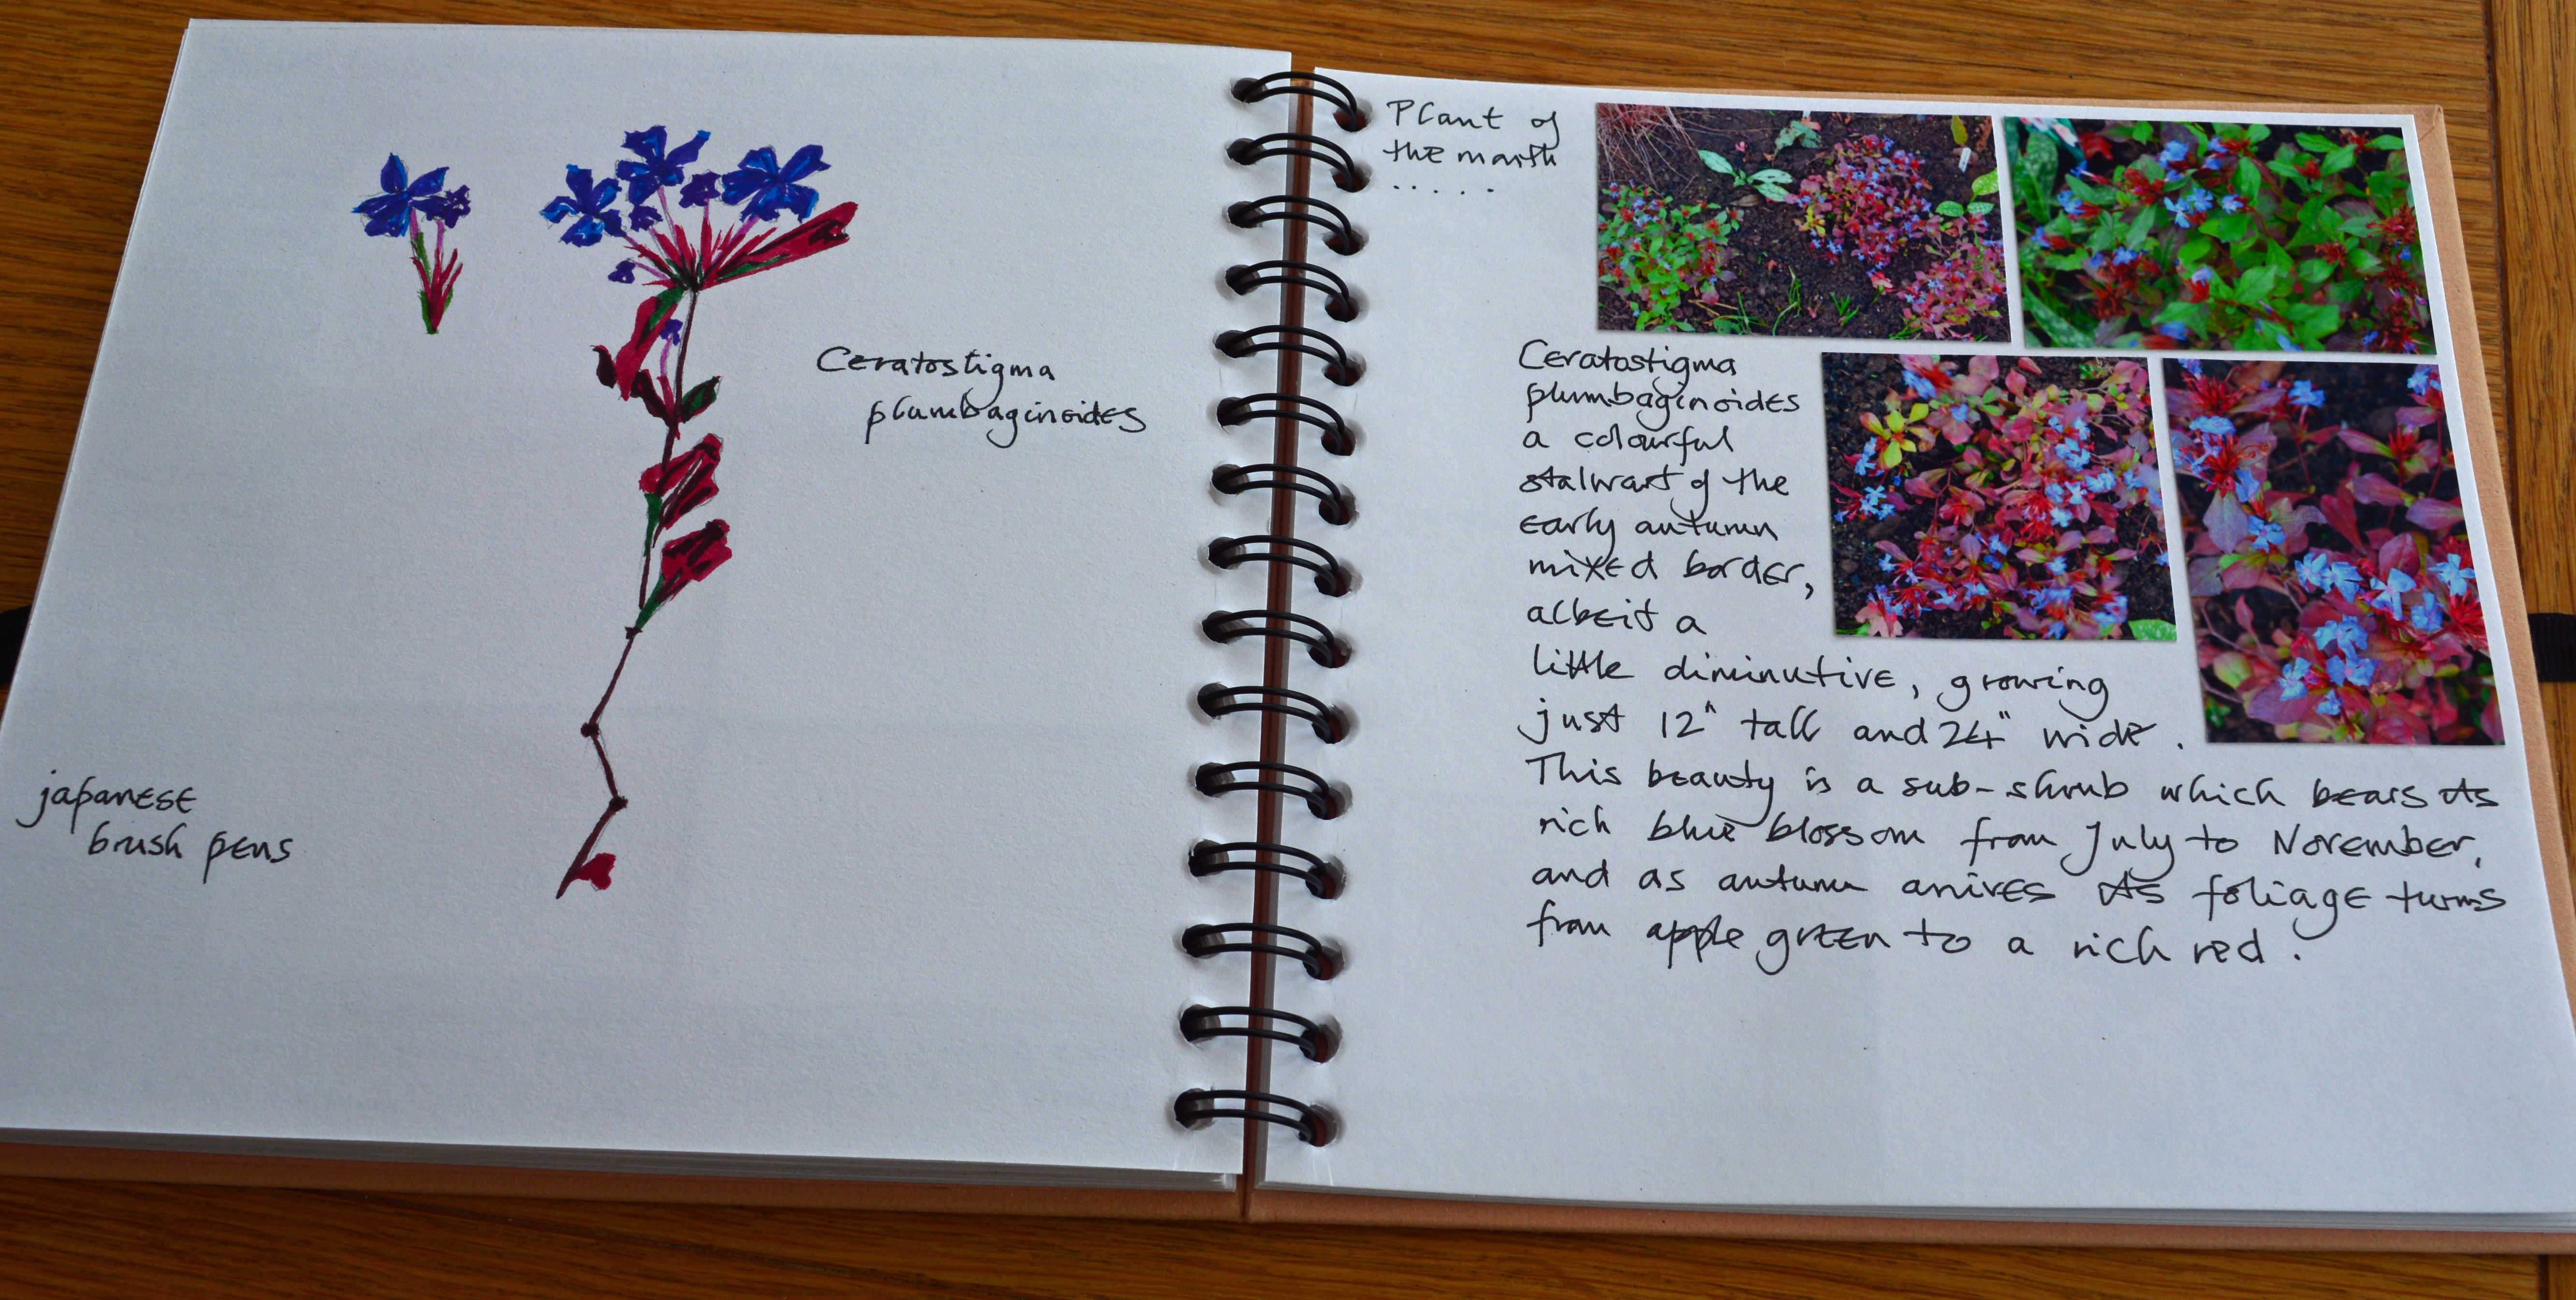 Ceratostigma
plumbaginoides
japanese
brush pens
Plant of
the month
.....
Ceratostigma
plumbaginoides
a colourful
stalwart of the
early autumn
mixed border,
albeit a
little diminutive, growing
just 12" tall and 24" wide.
This beauty is a sub-shrub which bears its
rich blue blossom from July to November,
and as autumn arrives its foliage turns
from apple green to a rich red.